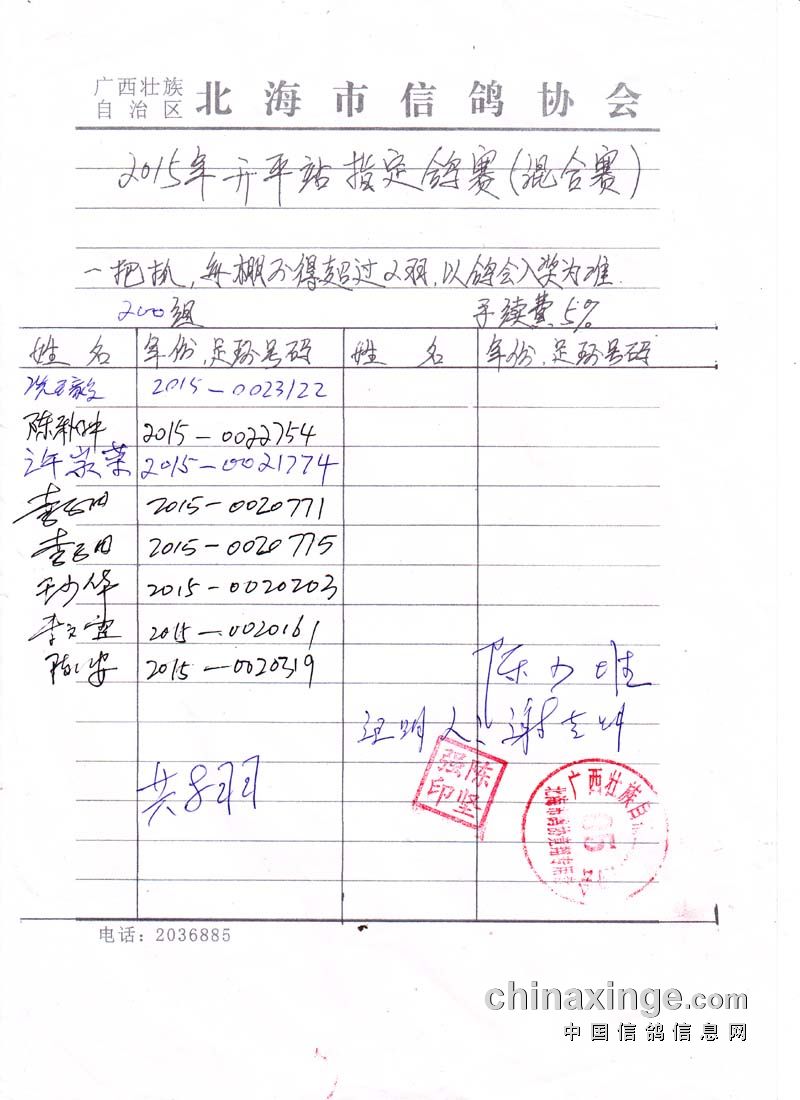 广西壮族
自治区 北海市信鸽协会
2015年开平站指定鸽赛(混合赛)
一把抓,每棚不得超过2羽,以鸽会入奖为准.
200组 手续費5%
姓名 年份,足环号码 姓名 年份,足环号码
2015-0023122
陈 2015-0022754
许崇荣 2015-0021774
李 2015-0020771
李 2015-0020775
王少华 2015-0020203
李文 2015-0020161
陈 2015-0020319
陈少
证明人: 谢
共8羽
陈坚强印
广西壮族自
05
电话: 2036885
chinaxinge.com
中国信鸽信息网